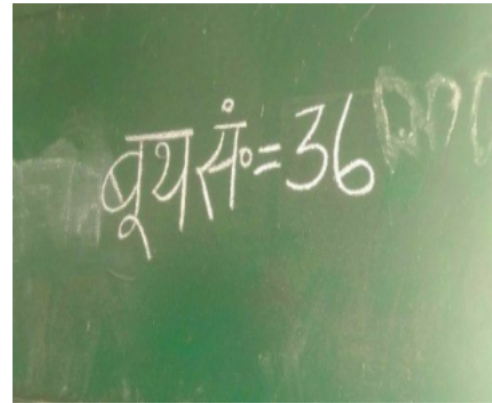 बूथ सं०= 36